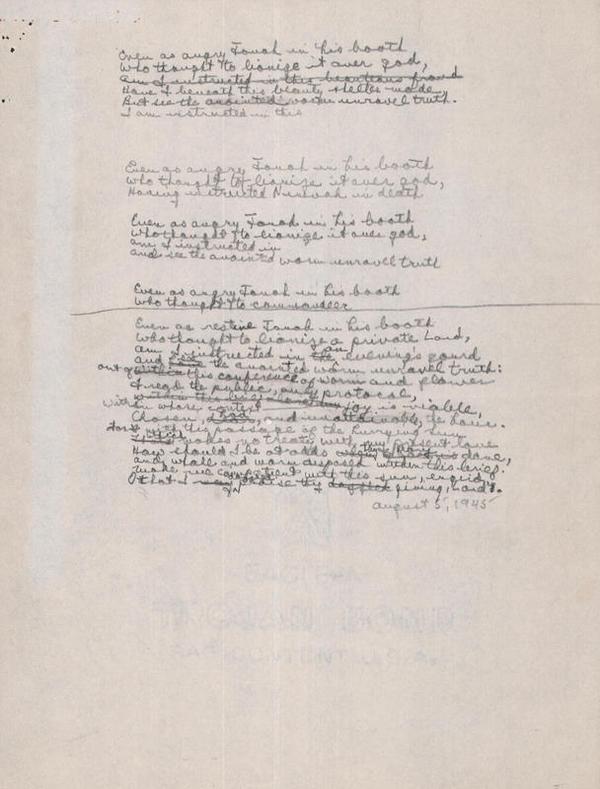 Even as angry Jonah in his booth
Who thought to lionize it over god,
am I instructed in this beauteous proud
Have I beneath this beauty shelter made
But see the anointed worm unravel truth.
I am instructed in this
Even as angry Jonah in his booth
Who thought to lionize it over god,
Having instructed Ninevah in death
Even as angry Jonah in his booth
Who thought to lionize it over god,
am I instructed in
and see the anointed worm unravel truth
Even as angry Jonah in his booth
Who thought to commandeer
Even as restive Jonah in his booth
Who thought to lionize a private Lord,
am I instructed in the an evening's gourd
and the anointed worm unravel truth:
out of this conference of worm and flower
I read the public, only protocol,
within this joy is viable,
within whose contest
Chosen, and unattainable, the dower.
with this passage of the hurrying sun
makes no treaty with my present love
How should I be at odds
and whale and worm disposed within this brief
make me competent with this sun,
O that I praise thy giving, Lord.
August 5, 1945